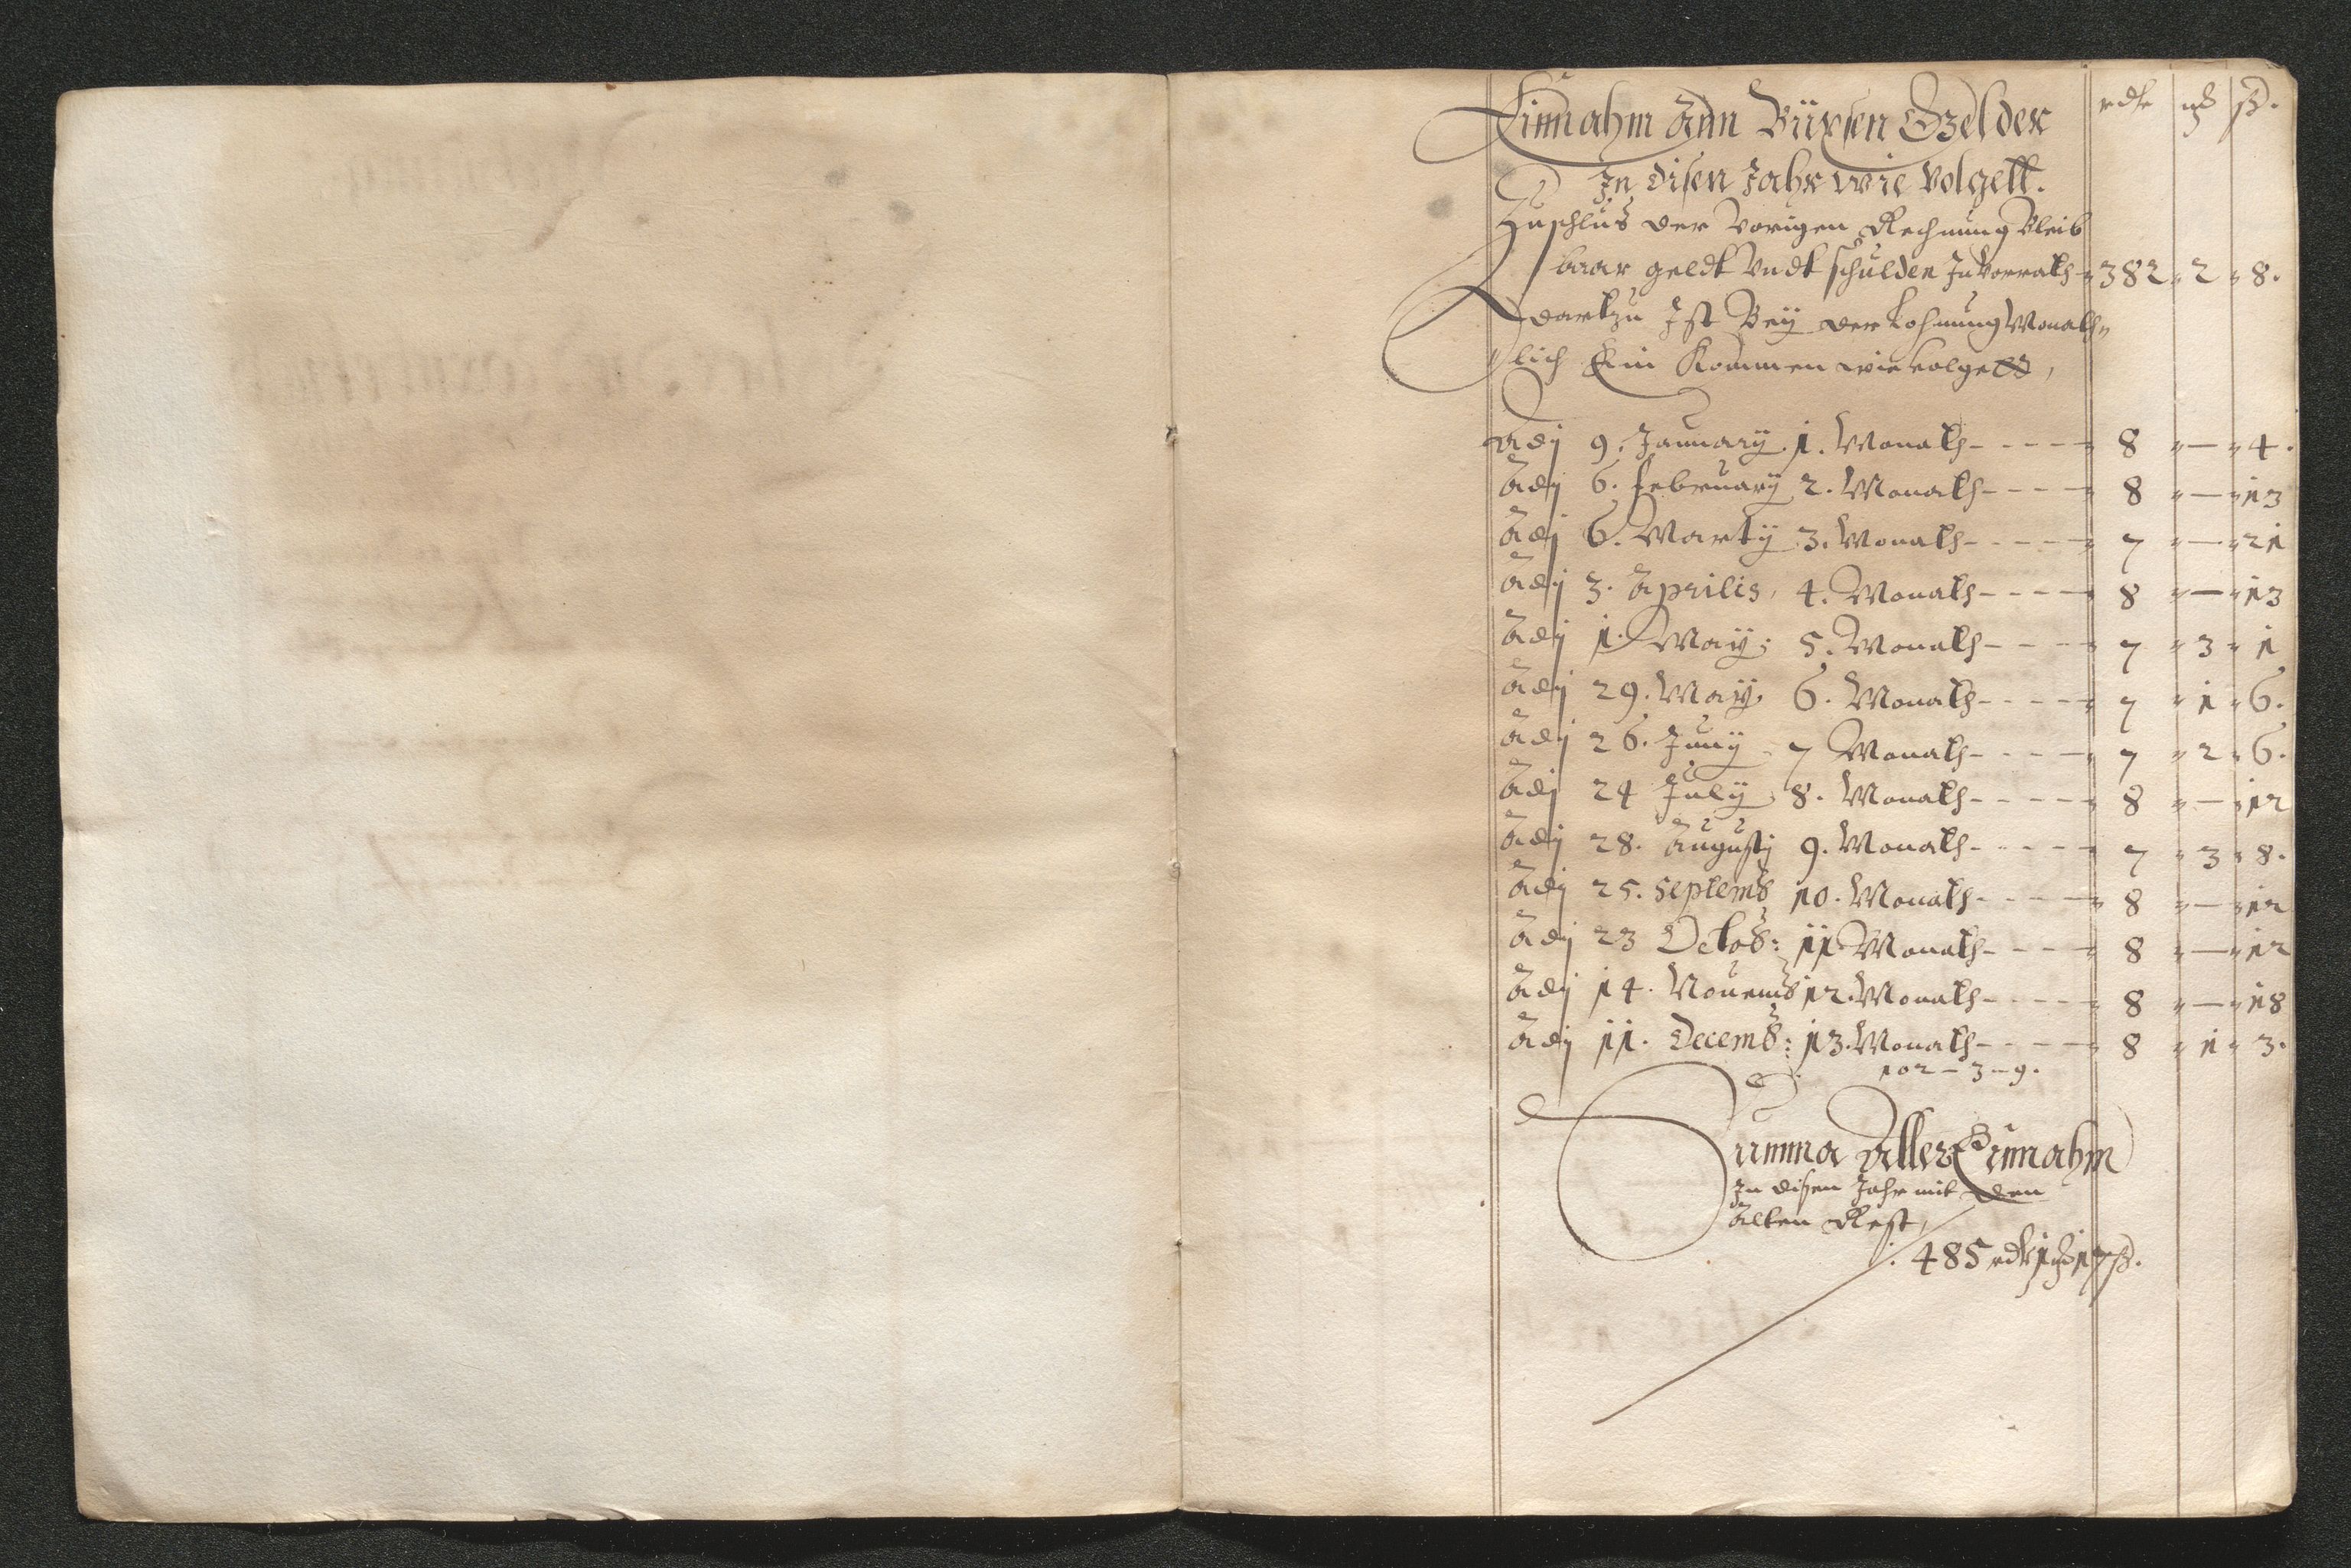 Einnahm Ann Büxsen Gelder
rdlr mß ß.
In disen Jahr wie volgett.
Zu schlus der vorigen Rechnung Bleib
baar geldt undt schulden In vorrath 382 2 8.
dartzu Ist Beÿ der Lohnung Monath„
lich Ein Kommen wie volgett,
Adÿ 9. Januarÿ. 1. Monath - - - - 8 — 4.
Adÿ 6. februarÿ 2. Monath - - - - 8 — 13
Adÿ 6. Martÿ 3. Monath - - - - 7 — 21
Adÿ 3. Aprilis, 4. Monath - - - - 8 — 13
Adÿ 1. Maÿ; 5. Monath - - - - 7 3 1
Adÿ 29. Maÿ, 6. Monath - - - - 7 1 6.
Adÿ 26. Junÿ 7 Monath - - - - 7 2 6.
Adÿ 24 Julÿ, 8. Monath - - - - 8 — 12
Adÿ 28. Augustj 9. Monath - - - - 7 3 8.
Adÿ 25. Septemb 10. Monath - - - - 8 — 12
Adÿ 23 Octob: 11. Monath - - - - 8 — 12
Adÿ 14. Nouemb 12. Monath - - - - 8 — 18
Adÿ 11. Decemb: 13. Monath - - - - 8 1 3.
102 — 3 — 9.
Summa Aller Einnahm
In disen Jahr mit den
Alten Rest,
485 rdlr 1 mß 17 ß.